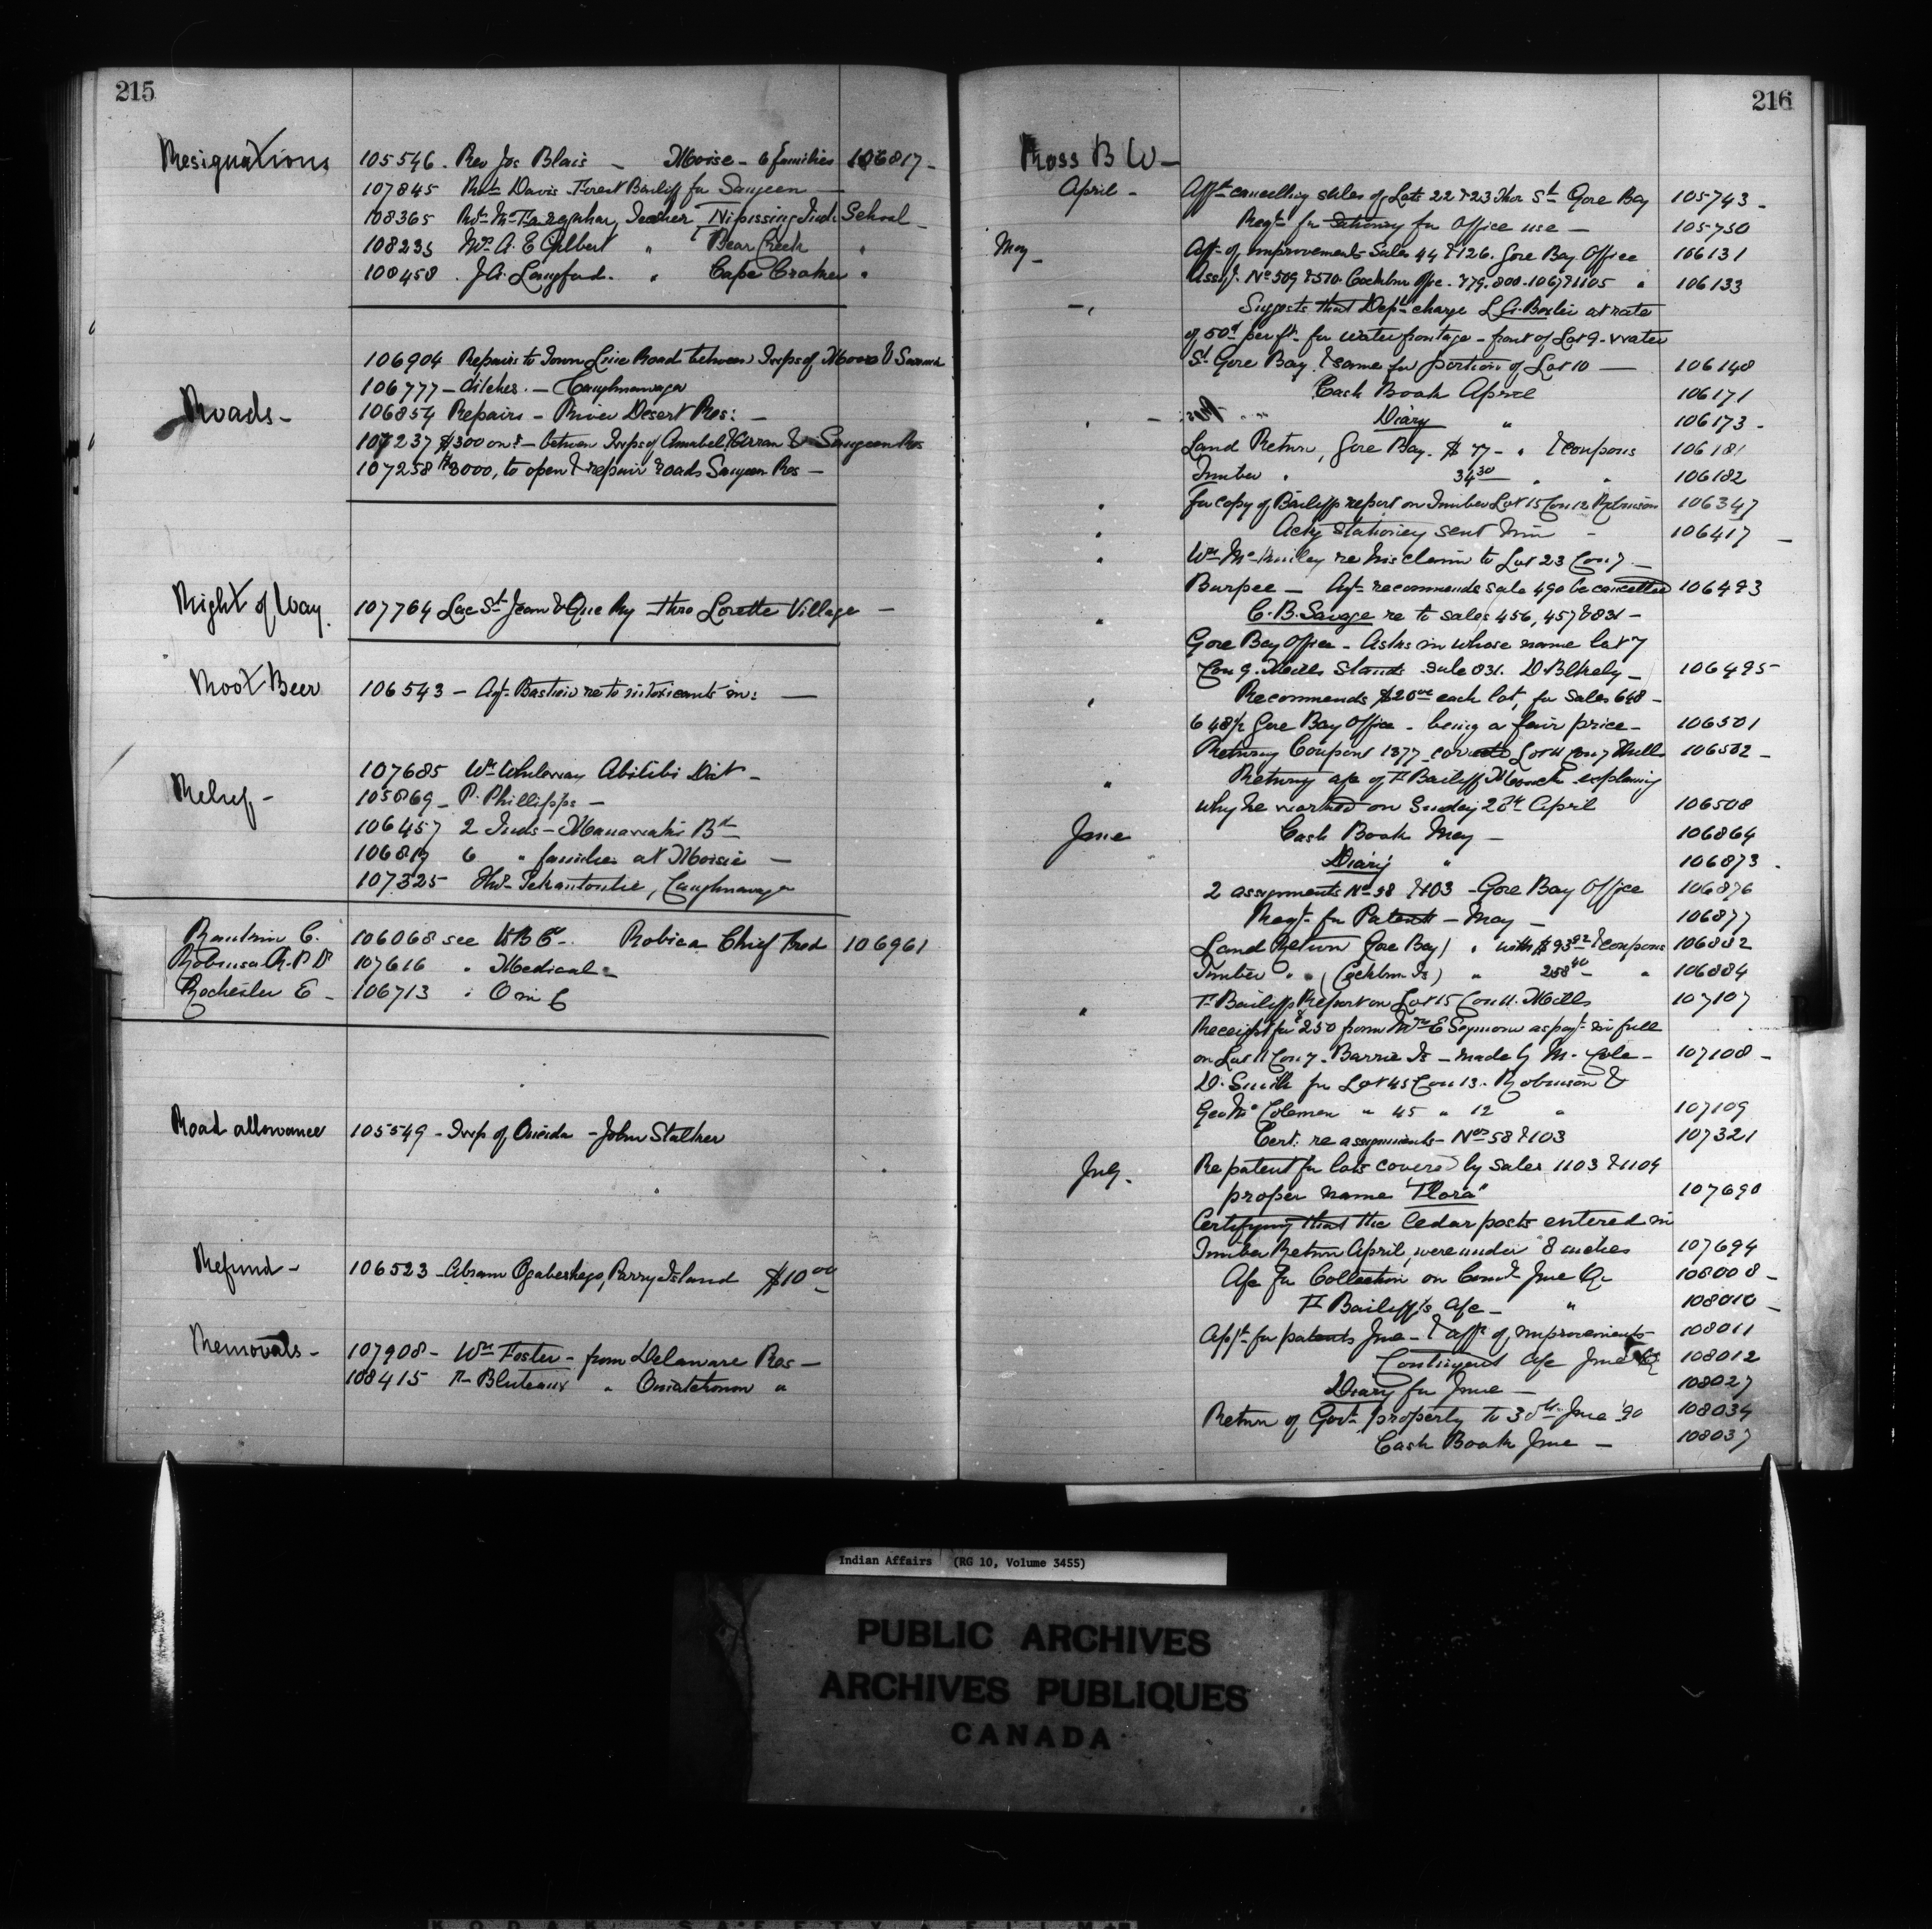 215
Resignations 105546. Rev Jos Blais — Moise - 6 families 106817 -
107845 Robt Davis Forest Bailiff for Saugeen —
108365 Robt McFarquhar, Teacher Nipissing Indn School -
108235 Mr A. E Gilbert " Bear Creek "
108458 . J.A. Langford. " Cape Croker "
106904 Repairs to Town Line Road between Twps of Moore & Sarnia
106777 - ditches. - Caughnawaga
Roads - 106854 Repairs - River Desert Res: -
107237 $300 on - between Twps of Amabel, Arran & Saugeen Res
107258 $3000, to open & repair roads Saugeen Res -
Right of Way. 107764 Lac St Jean & Que Ry thro Lorette Village -
Root Beer 106543 - Agt. Bastien re to intoxicants in: —
107685 Wm Abitibi Dist -
Relief - 105869 - P. Phillipps -
106457 2 Inds - Manawaki Bd
106817 6 " families at Moisie -
107325 Tekantoutie, Caughnawaga
C. 106068 see W B C - Robica Chief Fred 106961
Robinson R. P Dr 107616 " Medical -
Rochester E - 106713 " O in C
Road allowance 105549 - Twp of Oneida - John Stalker
Refund - 106523 - Abram Ogabeshego, Parry Island $10 00
Removals - 107908 - Wm Foster - from Delaware Res -
108415 Bluteaux " Oniatchonon "
216
Ross B W -
April - Afft cancelling sales of Lots 22 & 23 Thor St Gore Bay 105743 -
Reqn for Stationery for Office use - 105750
May - Afft of improvements Sales 44 & 126. Gore Bay Office 106131
Assgt. No 509 & 570 Cockburn Ofce. 779. 800. 1067 & 1105 " 106133
Suggests that Dept charge L. A. Boslie at rate
of 50 per ft. for water frontage - front of Lot 9 - Water
St Gore Bay, & same for portion of Lot 10 — 106148
Cash Book April 106171
Diary " 106173 -
Land Return, Gore Bay. $ 77 - " & coupons 106181
Timber " 34 30 " " 106182
" For copy of Bailiffs report on Timber Lot 15 Con 12 Robinson 106347
" Ackg Stationery sent him - 106417 -
" Wm McKinley re his claim to Lot 23 Con 7 -
Burpee - Agt recommends sale 490 be cancelled 106493
" C. B. Savage re to sales 456, 457 & 831 -
Gore Bay Office - Asks in whose name lot 7
Con 9. Mills Stands Sale 831. D Blkely - 106495
" Recommends $20 00 each lot, for Sales 648 -
648 1/2 Gore Bay Office - being a fair price - 106501
Returning Coupons 1377 covering Lot 11 Con 7 Mills 106502 -
" Returning a/c of F Bailiff Monck explaining
why he worked on Sunday 20th April 106508
June Cash Book May - 106864
Diary " 106873 -
2 assignments Nos 58 & 103 - Gore Bay Office 106876
Reqn for Patents - May - 106877
Land Return Gore Bay) " with $93 92 & coupons 106882
Timber " " (Cockburn Is) " 258 40 - " 106884
" F. Bailiffs Report on Lot 15 Con 11. Mills 107107
Receipt for $250 from Wm E Seymour as payt in full
on Lot 11 Con 7. Barrie Is - made by M. Cole - 107108 -
D. Smith for Lot 45 Con 13. Robinson &
Geo Coleman " 45 " 12 " 107109
Cert: re assignments - Nos 58 & 103 107321
July. Re patent for lots covered by Sales 1103 & 1104
proper name "Flora" 107690
Certifying that the Cedar posts entered in
Timber Return April, were under 8 inches 107694
A/c for Collection on Comn June Qr 108008 -
F Bailiff's a/c - " 108010 -
Appn for patents June - & affts of improvements 108011
Contingent a/c June Qr 108012
Diary for June - 108027
Return of Govt property to 30th June '90 108034
Cash Book June - 108037
Indian Affairs (RG 10, Volume 3455)
PUBLIC ARCHIVES
ARCHIVES PUBLIQUES
CANADA
KODAK SAFETY FILM